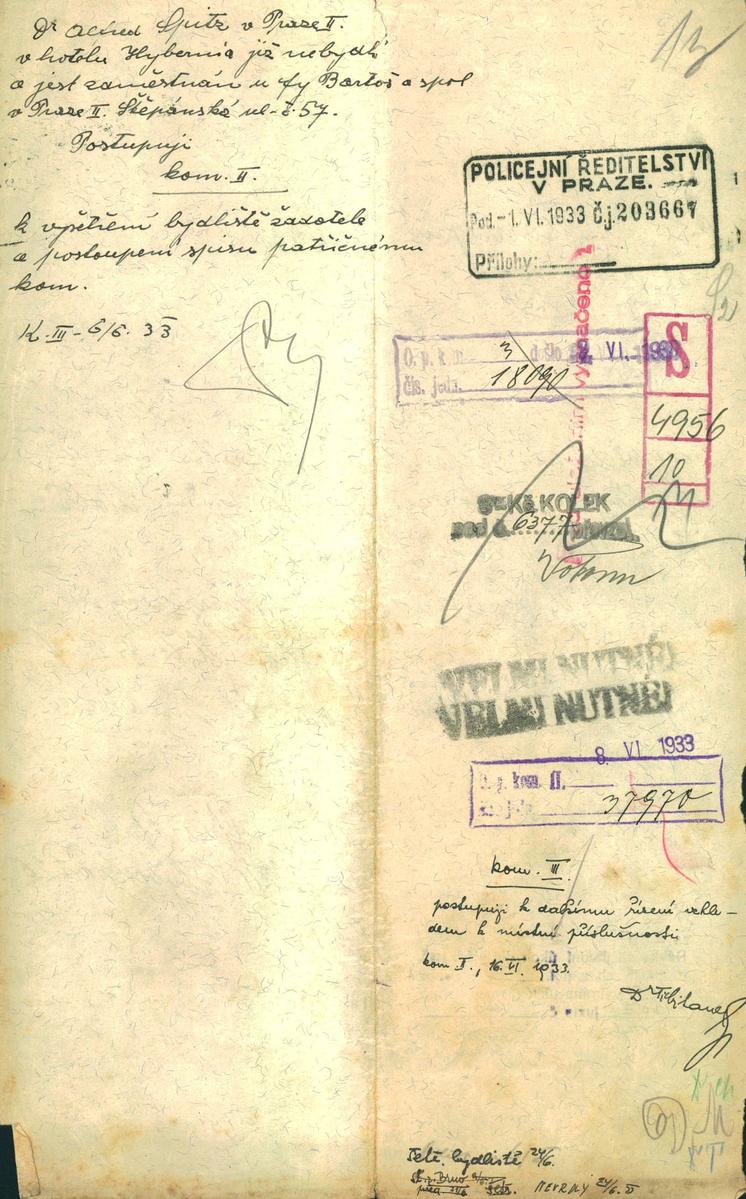 Dr Alfred Spitz v Praze II.
v hotelu Hybernia již nebydlí
a jest zaměstnán u fy Bartoš a spol
v Praze II. Štěpánská ul. č 57.
Postupuji
kom. II.
k vyšetření bydliště žadatele
a postoupení spisu patřičnému
kom.
K. III - 6/6. 33
13
POLICEJNÍ ŘEDITELSTVÍ
V PRAZE.
Pod. -1. VI. 1933 č.j. 203667
Přílohy:
O. p. k. m. 3 došlo VI. 1933
čís. jedn. 18090
S
4956
10
5 Kč KOLEK
pod č. 6377
VELMI NUTNÉ!
VELMI NUTNÉ!
8. VI 1933
kom. II.
37970
kom. III.
postupuji k dalšímu řízení vzhle-
dem k místní příslušnosti.
kom. II., 16. VI. 1933.
bydliště 24/6.